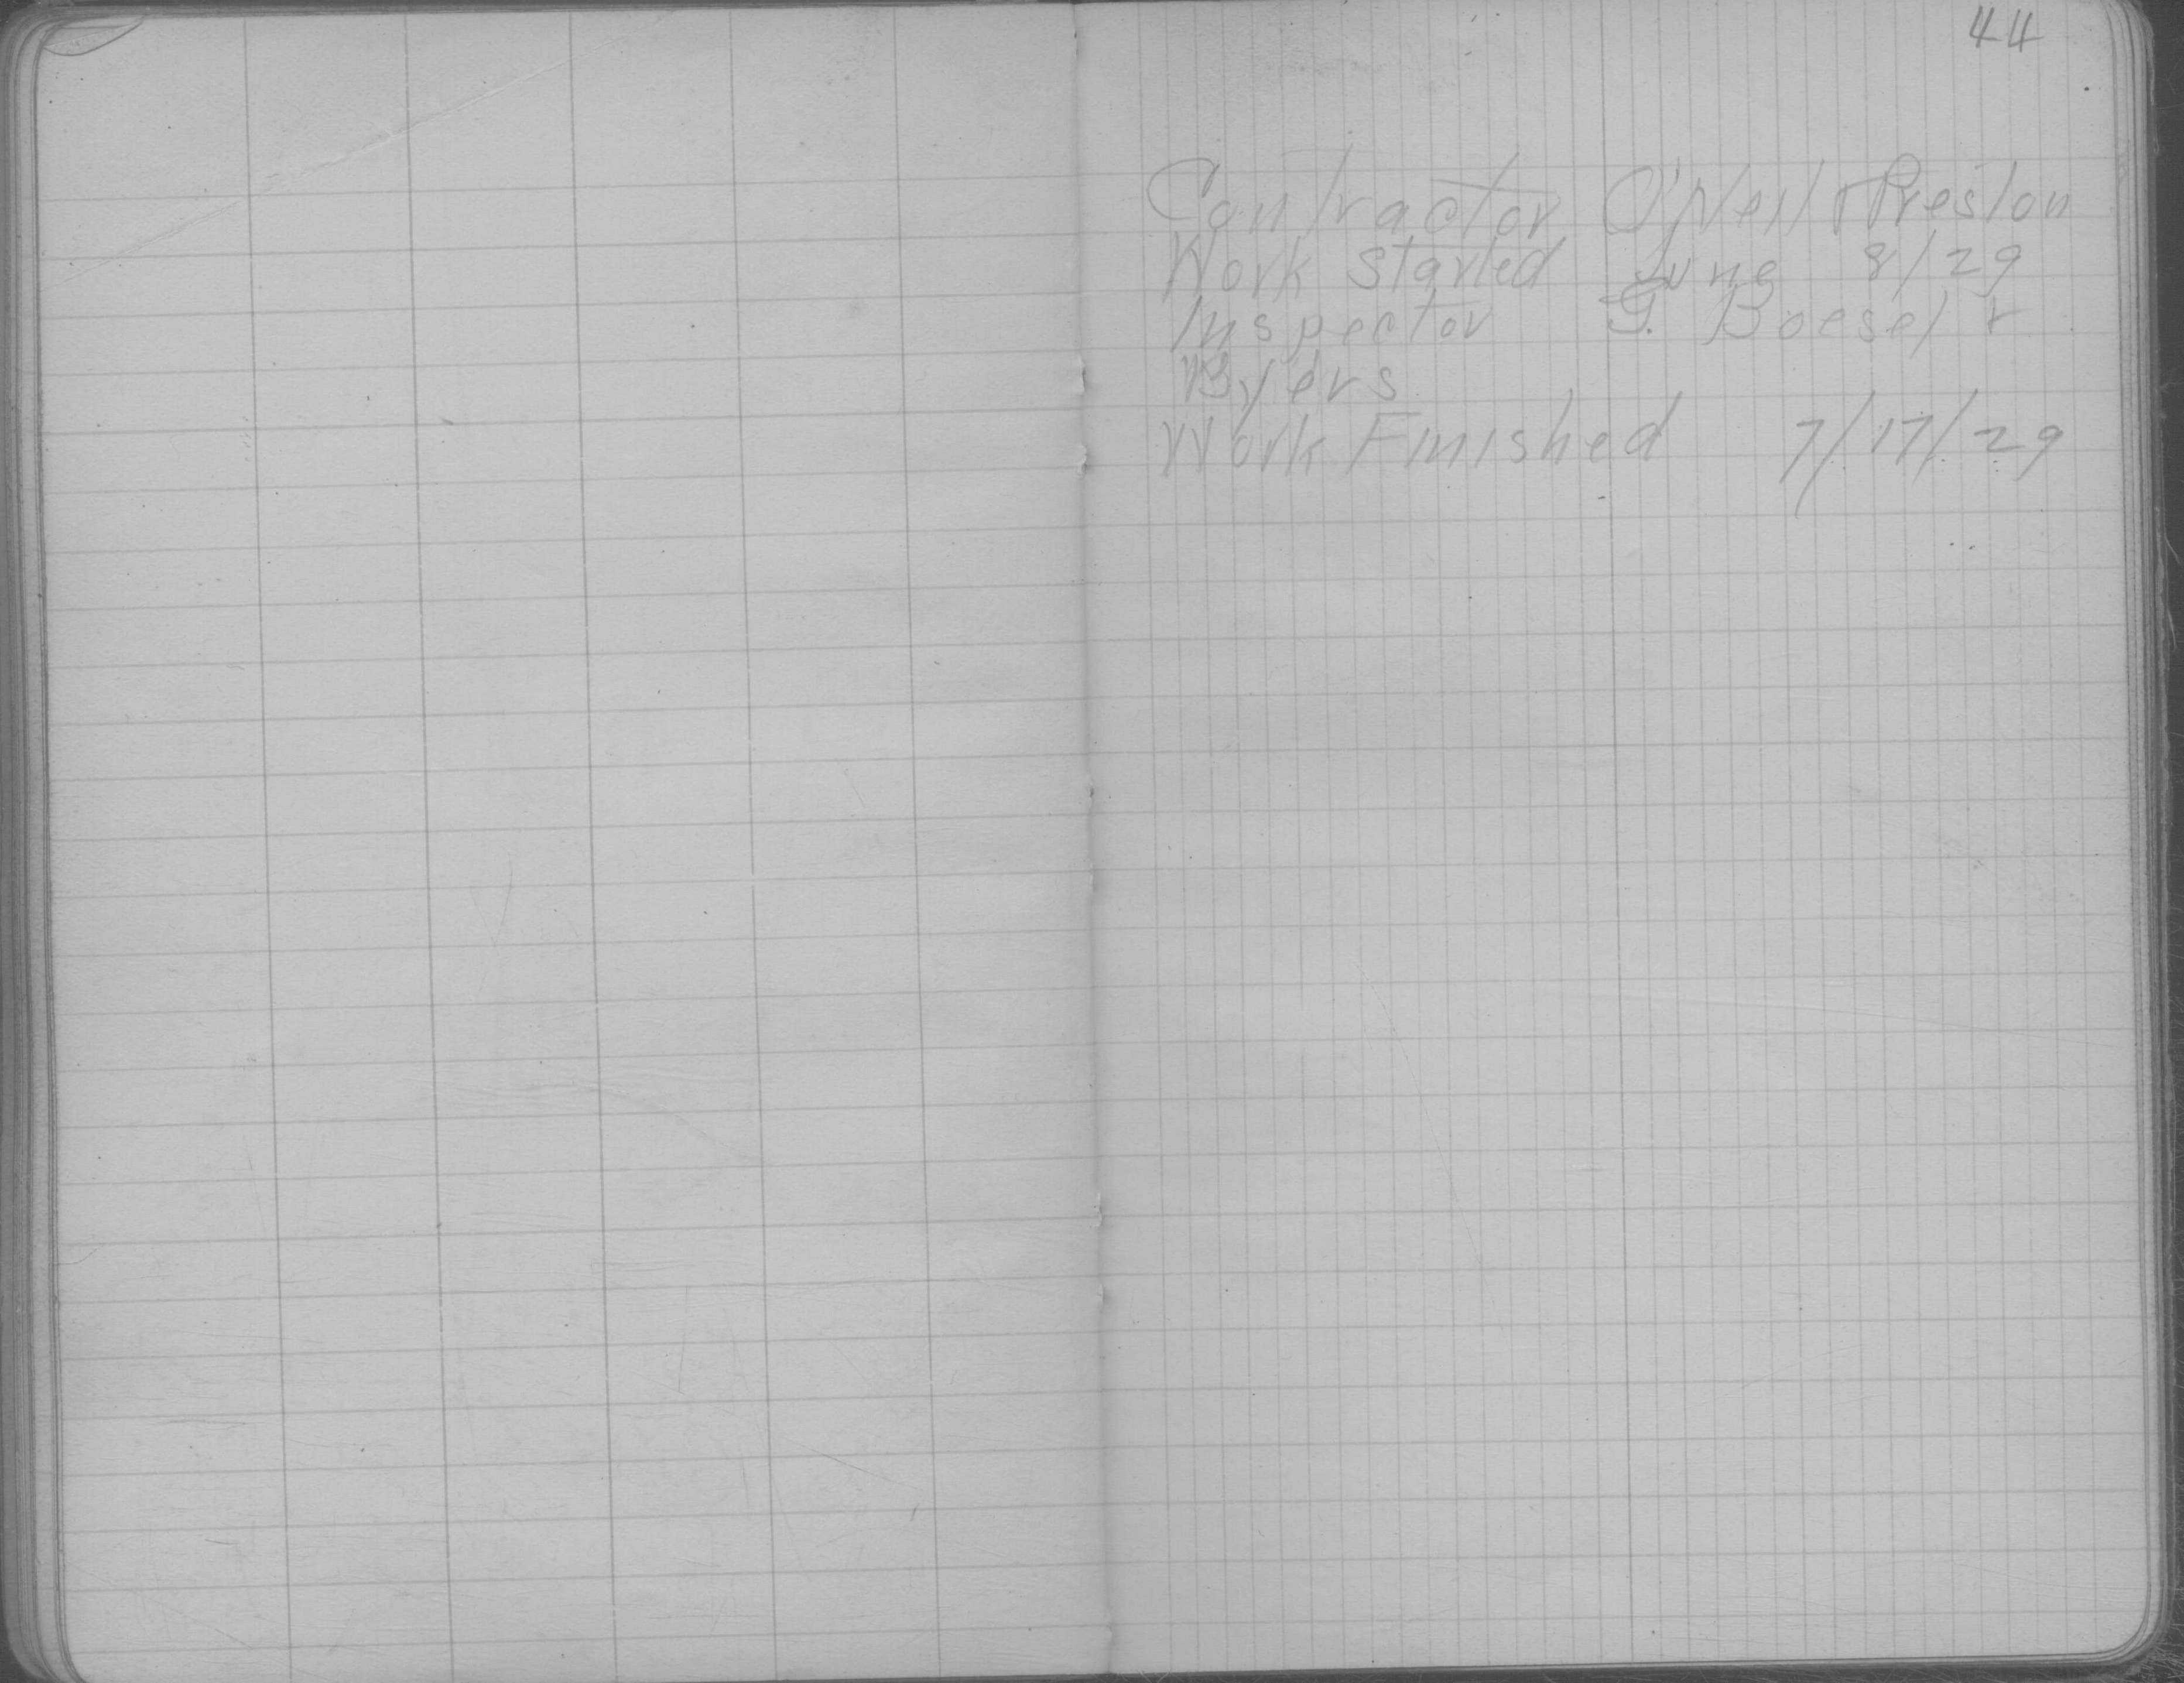 44
Contractor O'Neil + Preston
Work Started June 8/29
Inspector G. Boesel +
Byers
Work Finished 7/17/29